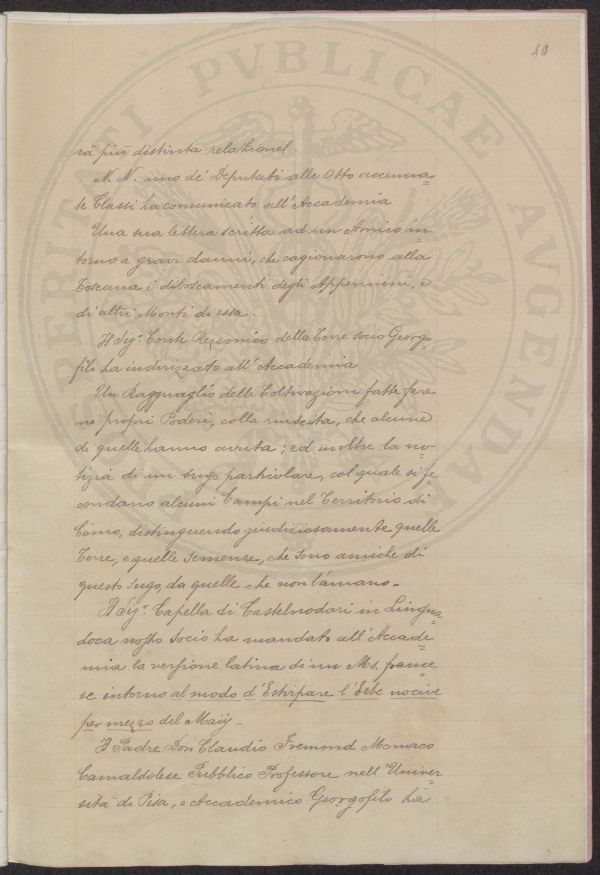 40
rà più distinta relazione.
N. N. uno de' Deputati alle Otto accenna=
te Classi ha comunicato all'Accademia
Una sua lettera scritta ad un Amico in=
torno a gravi danni, che cagionarono alla
Toscana i diboscamenti degli Appennini, e
di altri Monti di essa.
Il Sigr. Conte Rezzonico della Torre socio Georgo=
filo ha indirizzato all'Accademia
Un Ragguaglio delle Coltivazioni fatte fare
ne' propri Poderi, colla riuscita, che alcune
di quelle hanno avuta; ed inoltre la no=
tizia di un sugo particolare, col quale si fe=
condano alcuni Campi nel Territorio di
Como, distinguendo giudiziosamente quelle
Terre, e quelle Semenze, che sono amiche di
questo sugo, da quelle che non l'amano.
Il Sigr. Capella di Castelnodari in Lingua=
doca nostro Socio ha mandato all'Accade=
mia la versione latina di un Ms. france=
se intorno al modo d'Estirpare l'Erbe nocive
per mezzo del Maiy.
Il Padre Don Claudio Fremond Monaco
Camaldolese Pubblico Professore nell'Univer=
sità di Pisa, e Accademico Georgofilo ha
PROSPERITATI PVBLICAE AVGENDAE